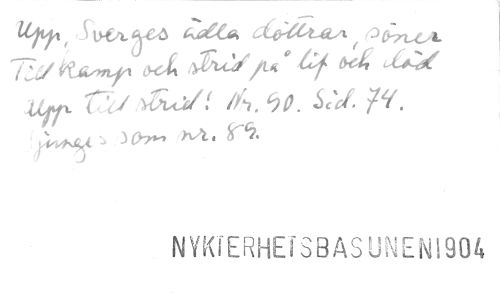 Upp, Sverges ädla döttrar, söner
Till kamp och strid på lif och död
Upp till strid! Nr. 90. Sid. 74.
Sjunges som nr. 89.
NYKTERHETSBASUNEN1904